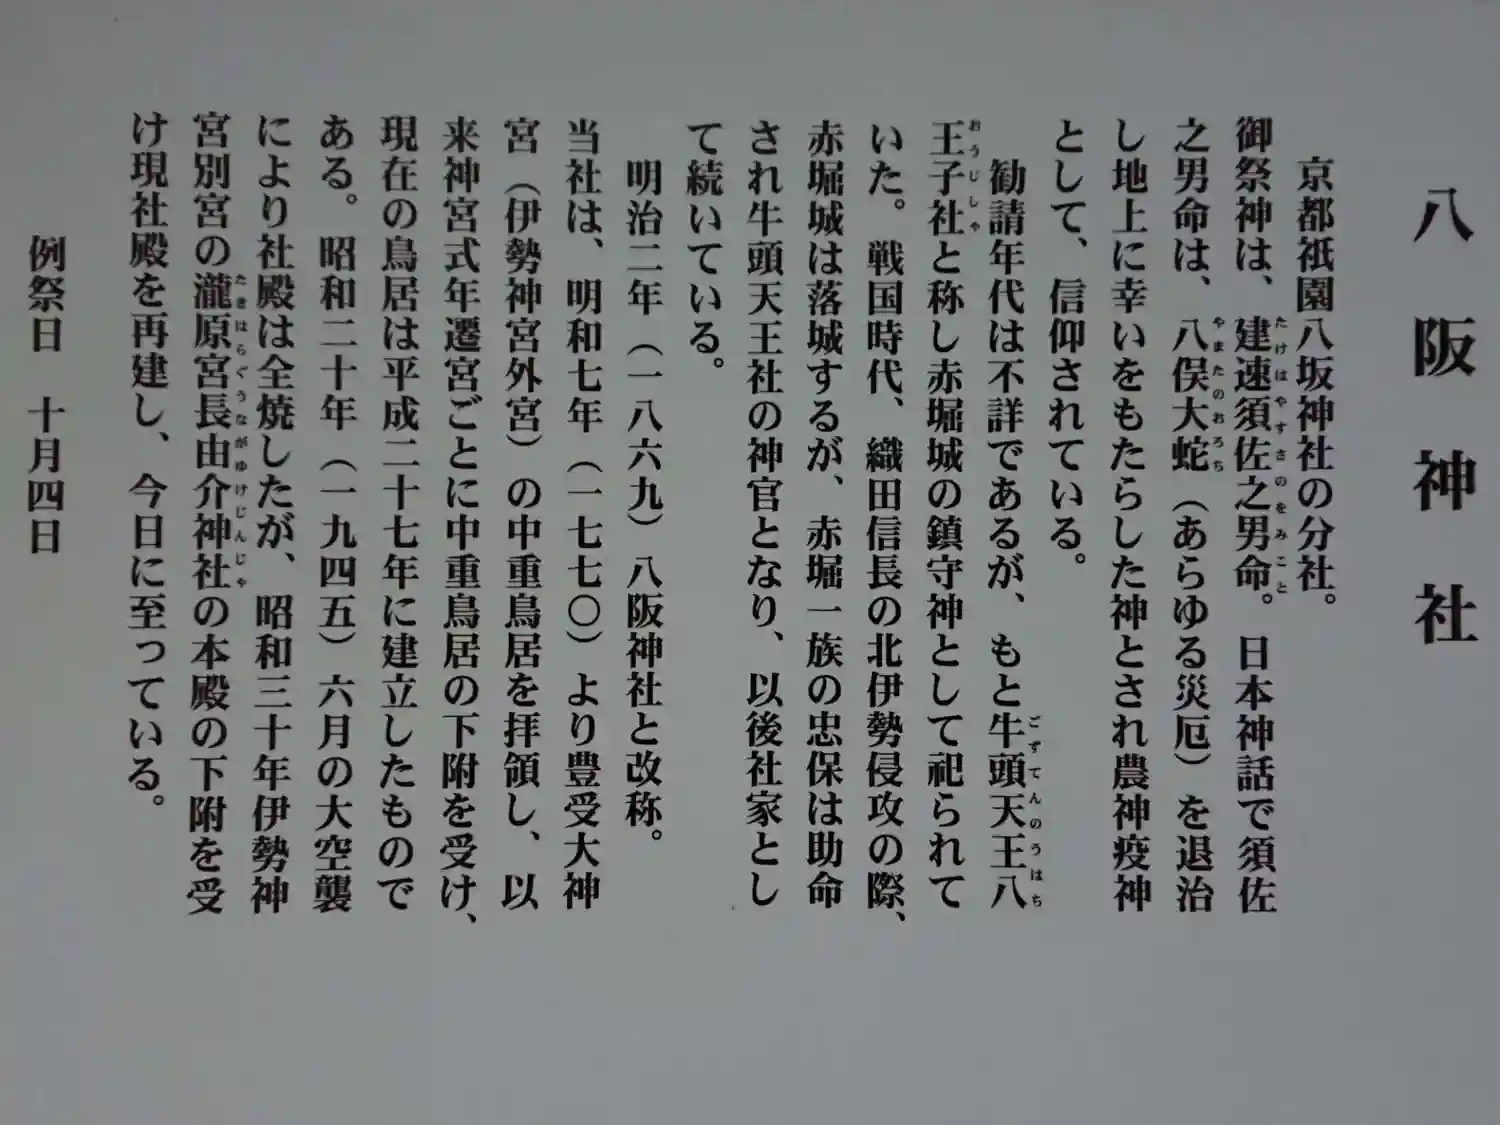 八阪神社
京都祇園八坂神社の分社。
御祭神は、建速須佐之男命。日本神話で須佐
之男命は、八俣大蛇（あらゆる災厄）を退治
し地上に幸いをもたらした神とされ農神疫神
として、信仰されている。
勧請年代は不詳であるが、もと牛頭天王八
王子社と称し赤堀城の鎮守神として祀られて
いた。戦国時代、織田信長の北伊勢侵攻の際、
赤堀城は落城するが、赤堀一族の忠保は助命
され牛頭天王社の神官となり、以後社家とし
て続いている。
明治二年（一八六九）八阪神社と改称。
当社は、明和七年（一七七〇）より豊受大神
宮（伊勢神宮外宮）の中重鳥居を拝領し、以
来神宮式年遷宮ごとに中重鳥居の下附を受け、
現在の鳥居は平成二十七年に建立したもので
ある。昭和二十年（一九四五）六月の大空襲
により社殿は全焼したが、昭和三十年伊勢神
宮別宮の瀧原宮長由介神社の本殿の下附を受
け現社殿を再建し、今日に至っている。
例祭日　十月四日